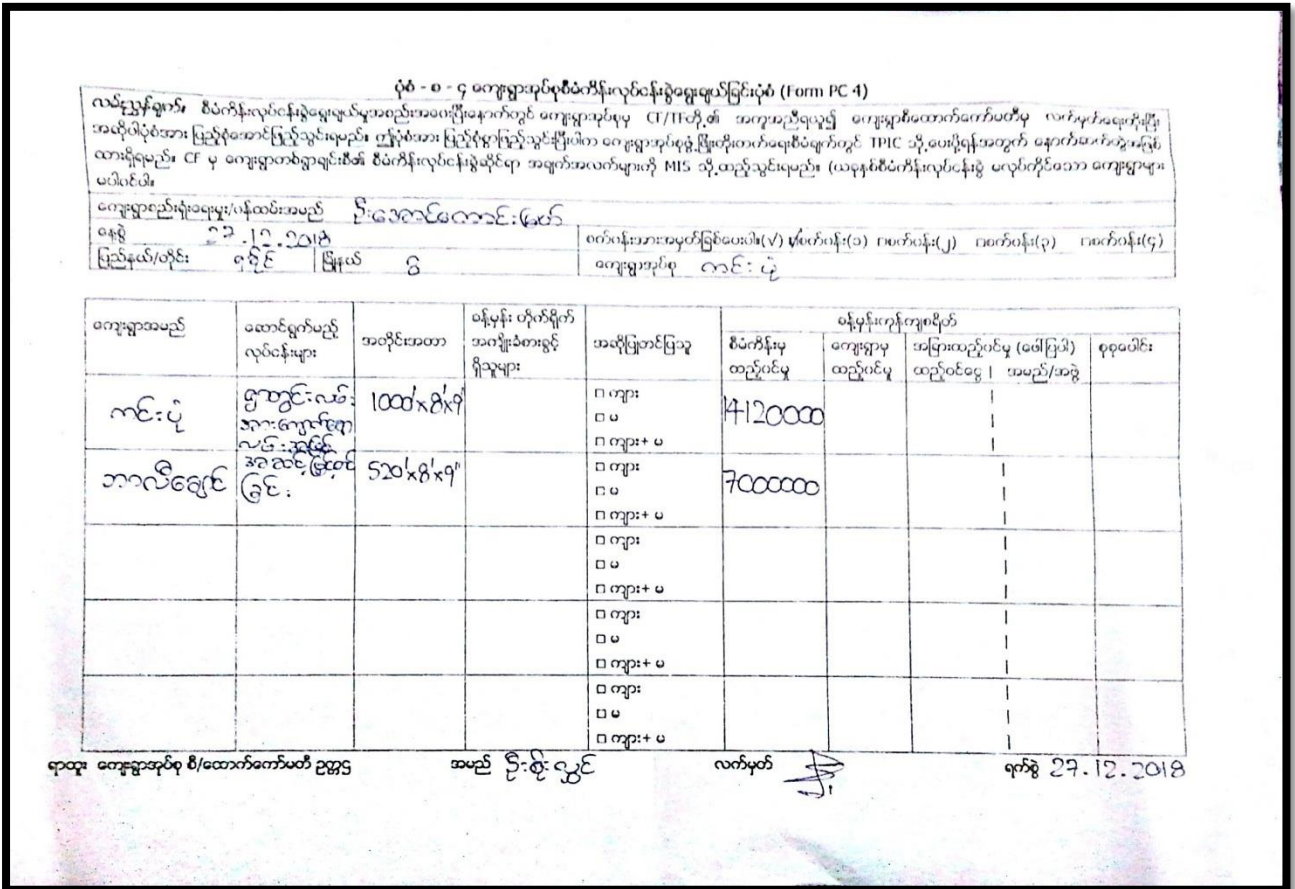 ပုံစံ - စ - ၄ ကျေးရွာအုပ်စုစီမံကိန်းလုပ်ငန်းခွဲရွေးချယ်ခြင်းပုံစံ (Form PC 4)
လမ်းညွှန်ချက်။ စီမံကိန်းလုပ်ငန်းခွဲရွေးချယ်မှုအစည်းအဝေးပြီးနောက်တွင် ကျေးရွာအုပ်စုမှ CF/TFတို့၏ အကူအညီရယူ၍ ကျေးရွာစီထောက်ကော်မတီမှ လက်မှတ်ရေးထိုးပြီး
အဆိုပါပုံစံအား ပြည့်စုံအောင်ဖြည့်သွင်းရမည်။ ဤပုံစံအား ပြည့်စုံစွာဖြည့်သွင်းပြီးပါက ကျေးရွာအုပ်စုဖွံ့ဖြိုးတိုးတက်ရေးစီမံချက်တွင် TPIC သို့ပေးပို့ရန်အတွက် နောက်ဆက်တွဲအဖြစ်
ထားရှိရမည်။ CF မှ ကျေးရွာတစ်ရွာချင်းစီ၏ စီမံကိန်းလုပ်ငန်းခွဲဆိုင်ရာ အချက်အလက်များကို MIS သို့ထည့်သွင်းရမည်။ (ယခုနှစ်စီမံကိန်းလုပ်ငန်းခွဲ မလုပ်ကိုင်သော ကျေးရွာများ
မပါဝင်ပါ။
ကျေးရွာစည်းရုံးရေးမှူး/ဝန်ထမ်းအမည် ဦးအောင်ကောင်းမြတ်
နေ့စွဲ 27.12.2018 စက်ဝန်းအားအမှတ်ခြစ်ပေးပါ။(√) စက်ဝန်း(၁) □စက်ဝန်း(၂) □စက်ဝန်း(၃) □စက်ဝန်း(၄)
ပြည်နယ်/တိုင်း ရခိုင် မြို့နယ် ဂွ ကျေးရွာအုပ်စု ကင်းပုံ
ကျေးရွာအမည် ဆောင်ရွက်မည့် လုပ်ငန်းများ အတိုင်းအတာ ခန့်မှန်း တိုက်ရိုက် အကျိုးခံစားခွင့် ရှိသူများ အဆိုပြုတင်ပြသူ ခန့်မှန်းကုန်ကျစရိတ်
စီမံကိန်းမှ ထည့်ဝင်မှု ကျေးရွာမှ ထည့်ဝင်မှု အခြားထည့်ဝင်မှု (ဖော်ပြပါ) ထည့်ဝင်ငွေ | အမည်/အဖွဲ့ စုစုပေါင်း
ကင်းပုံ ရွာတွင်းလမ်း 1000'x8'x9" □ ကျား 14120000
အားကျောက်ချော □ မ
လမ်းအဖြစ် □ ကျား+ မ
ဘာလီချောင် အဆင့်မြှင့်တင် 520'x8'x9" □ ကျား 7000000
ခြင်း □ မ
□ ကျား+ မ
□ ကျား
□ မ
□ ကျား+ မ
□ ကျား
□ မ
□ ကျား+ မ
□ ကျား
□ မ
□ ကျား+ မ
ရာထူး ကျေးရွာအုပ်စု စီ/ထောက်ကော်မတီ ဥက္ကဋ္ဌ အမည် ဦးစိုးလွင် လက်မှတ် ရက်စွဲ 27.12.2018